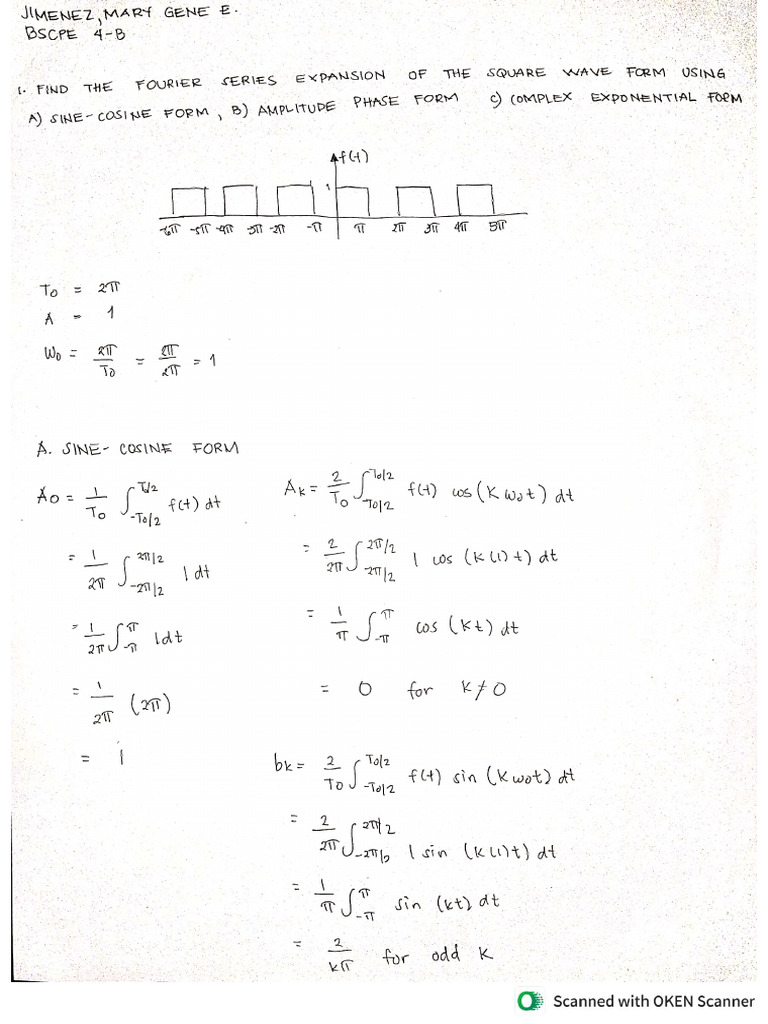 JIMENEZ, MARY GENE E.
BSCPE 4-B
1. FIND THE FOURIER SERIES EXPANSION OF THE SQUARE WAVE FORM USING
A) SINE-COSINE FORM, B) AMPLITUDE PHASE FORM C) COMPLEX EXPONENTIAL FORM
f(t)
1
-6π -5π -4π -3π -2π -π π 2π 3π 4π 5π
T0 = 2π
A = 1
W0 = 2π/T0 = 2π/2π = 1
A. SINE-COSINE FORM
A0 = 1/T0 ∫_{-T0/2}^{T0/2} f(t) dt
= 1/2π ∫_{-2π/2}^{2π/2} 1 dt
= 1/2π ∫_{-π}^{π} 1 dt
= 1/2π (2π)
= 1
Ak = 2/T0 ∫_{-T0/2}^{T0/2} f(t) cos (K w0 t) dt
= 2/2π ∫_{-2π/2}^{2π/2} 1 cos (k(1)t) dt
= 1/π ∫_{-π}^{π} cos (kt) dt
= 0 for k≠0
bk = 2/T0 ∫_{-T0/2}^{T0/2} f(t) sin (k w0 t) dt
= 2/2π ∫_{-2π/2}^{2π/2} 1 sin (k(1)t) dt
= 1/π ∫_{-π}^{π} sin (kt) dt
= 2/kπ for odd k
Scanned with OKEN Scanner